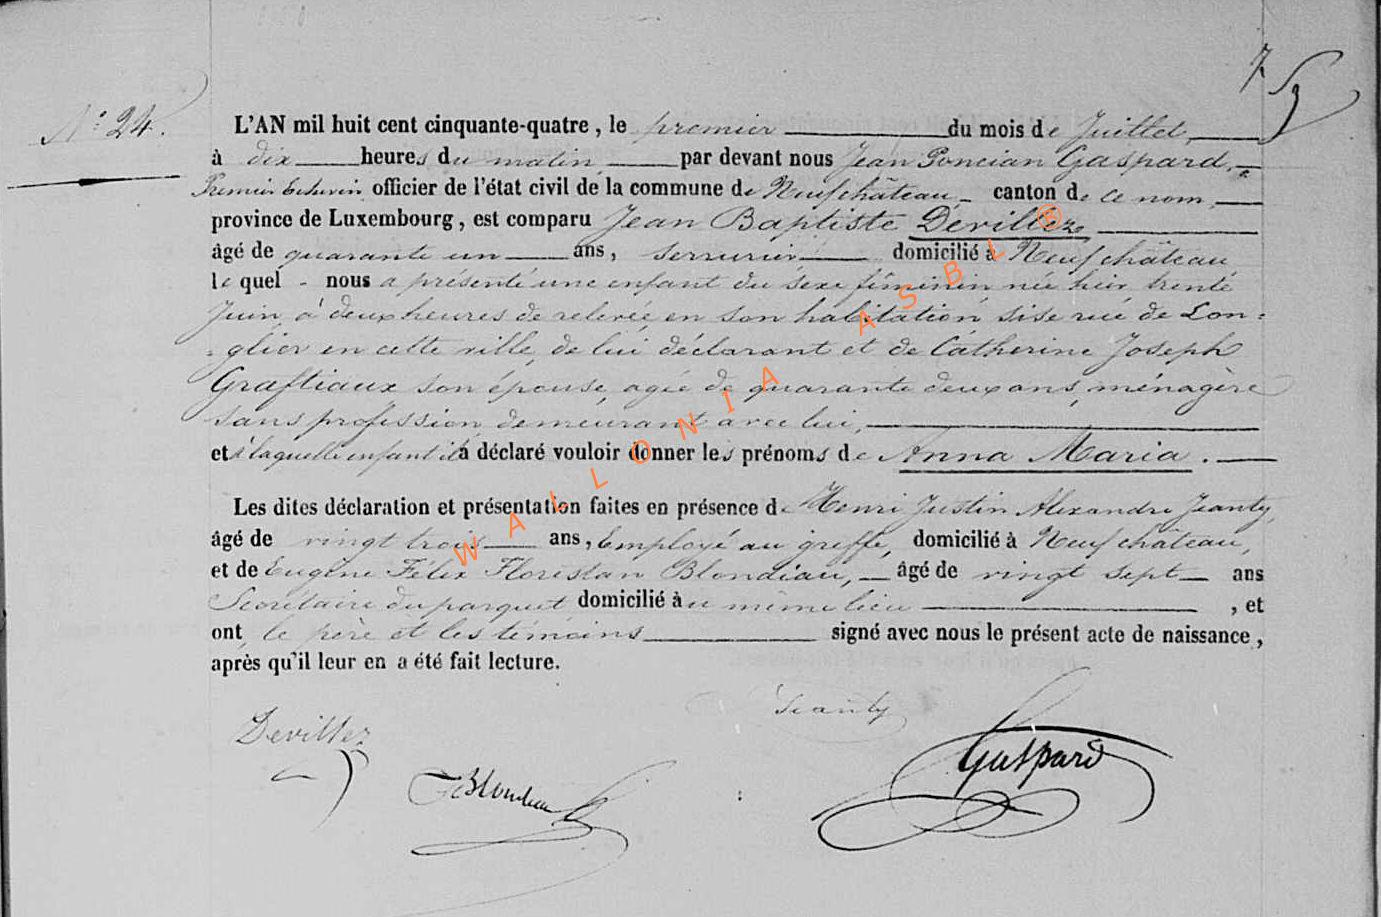 N° 24.
L'AN mil huit cent cinquante-quatre, le premier du mois de Juillet,
à dix heures du matin, par devant nous Jean Poncian Gaspard,
Premier Echevin officier de l'état civil de la commune de Neufchâteau, canton de ce nom,
province de Luxembourg, est comparu Jean Baptiste Devillez
âgé de quarante un ans, serrurier domicilié à Neufchâteau
le quel nous a présenté une enfant du sexe féminin née hier trente
Juin à deux heures de relevée en son habitation sise rue de Lon=
=glier en cette ville, de lui déclarant et de Catherine Joseph
Graftiaux son épouse, agée de quarante deux ans, ménagère
sans profession demeurant avec lui,
et à laquelle enfant il a déclaré vouloir donner les prénoms de Anna Maria.
Les dites déclaration et présentation faites en présence de Henri Justin Alexandre Jeanty,
âgé de vingt trois ans, Employé au greffe, domicilié à Neufchâteau,
et de Eugène Félix Florestan Blondiau, âgé de vingt sept ans
Secrétaire du parquet domicilié au même lieu, et
ont le père et les témoins signé avec nous le présent acte de naissance,
après qu'il leur en a été fait lecture.
Devillez
Jeanty
Blondiau
Gaspard
WALLONIA ASBL ®